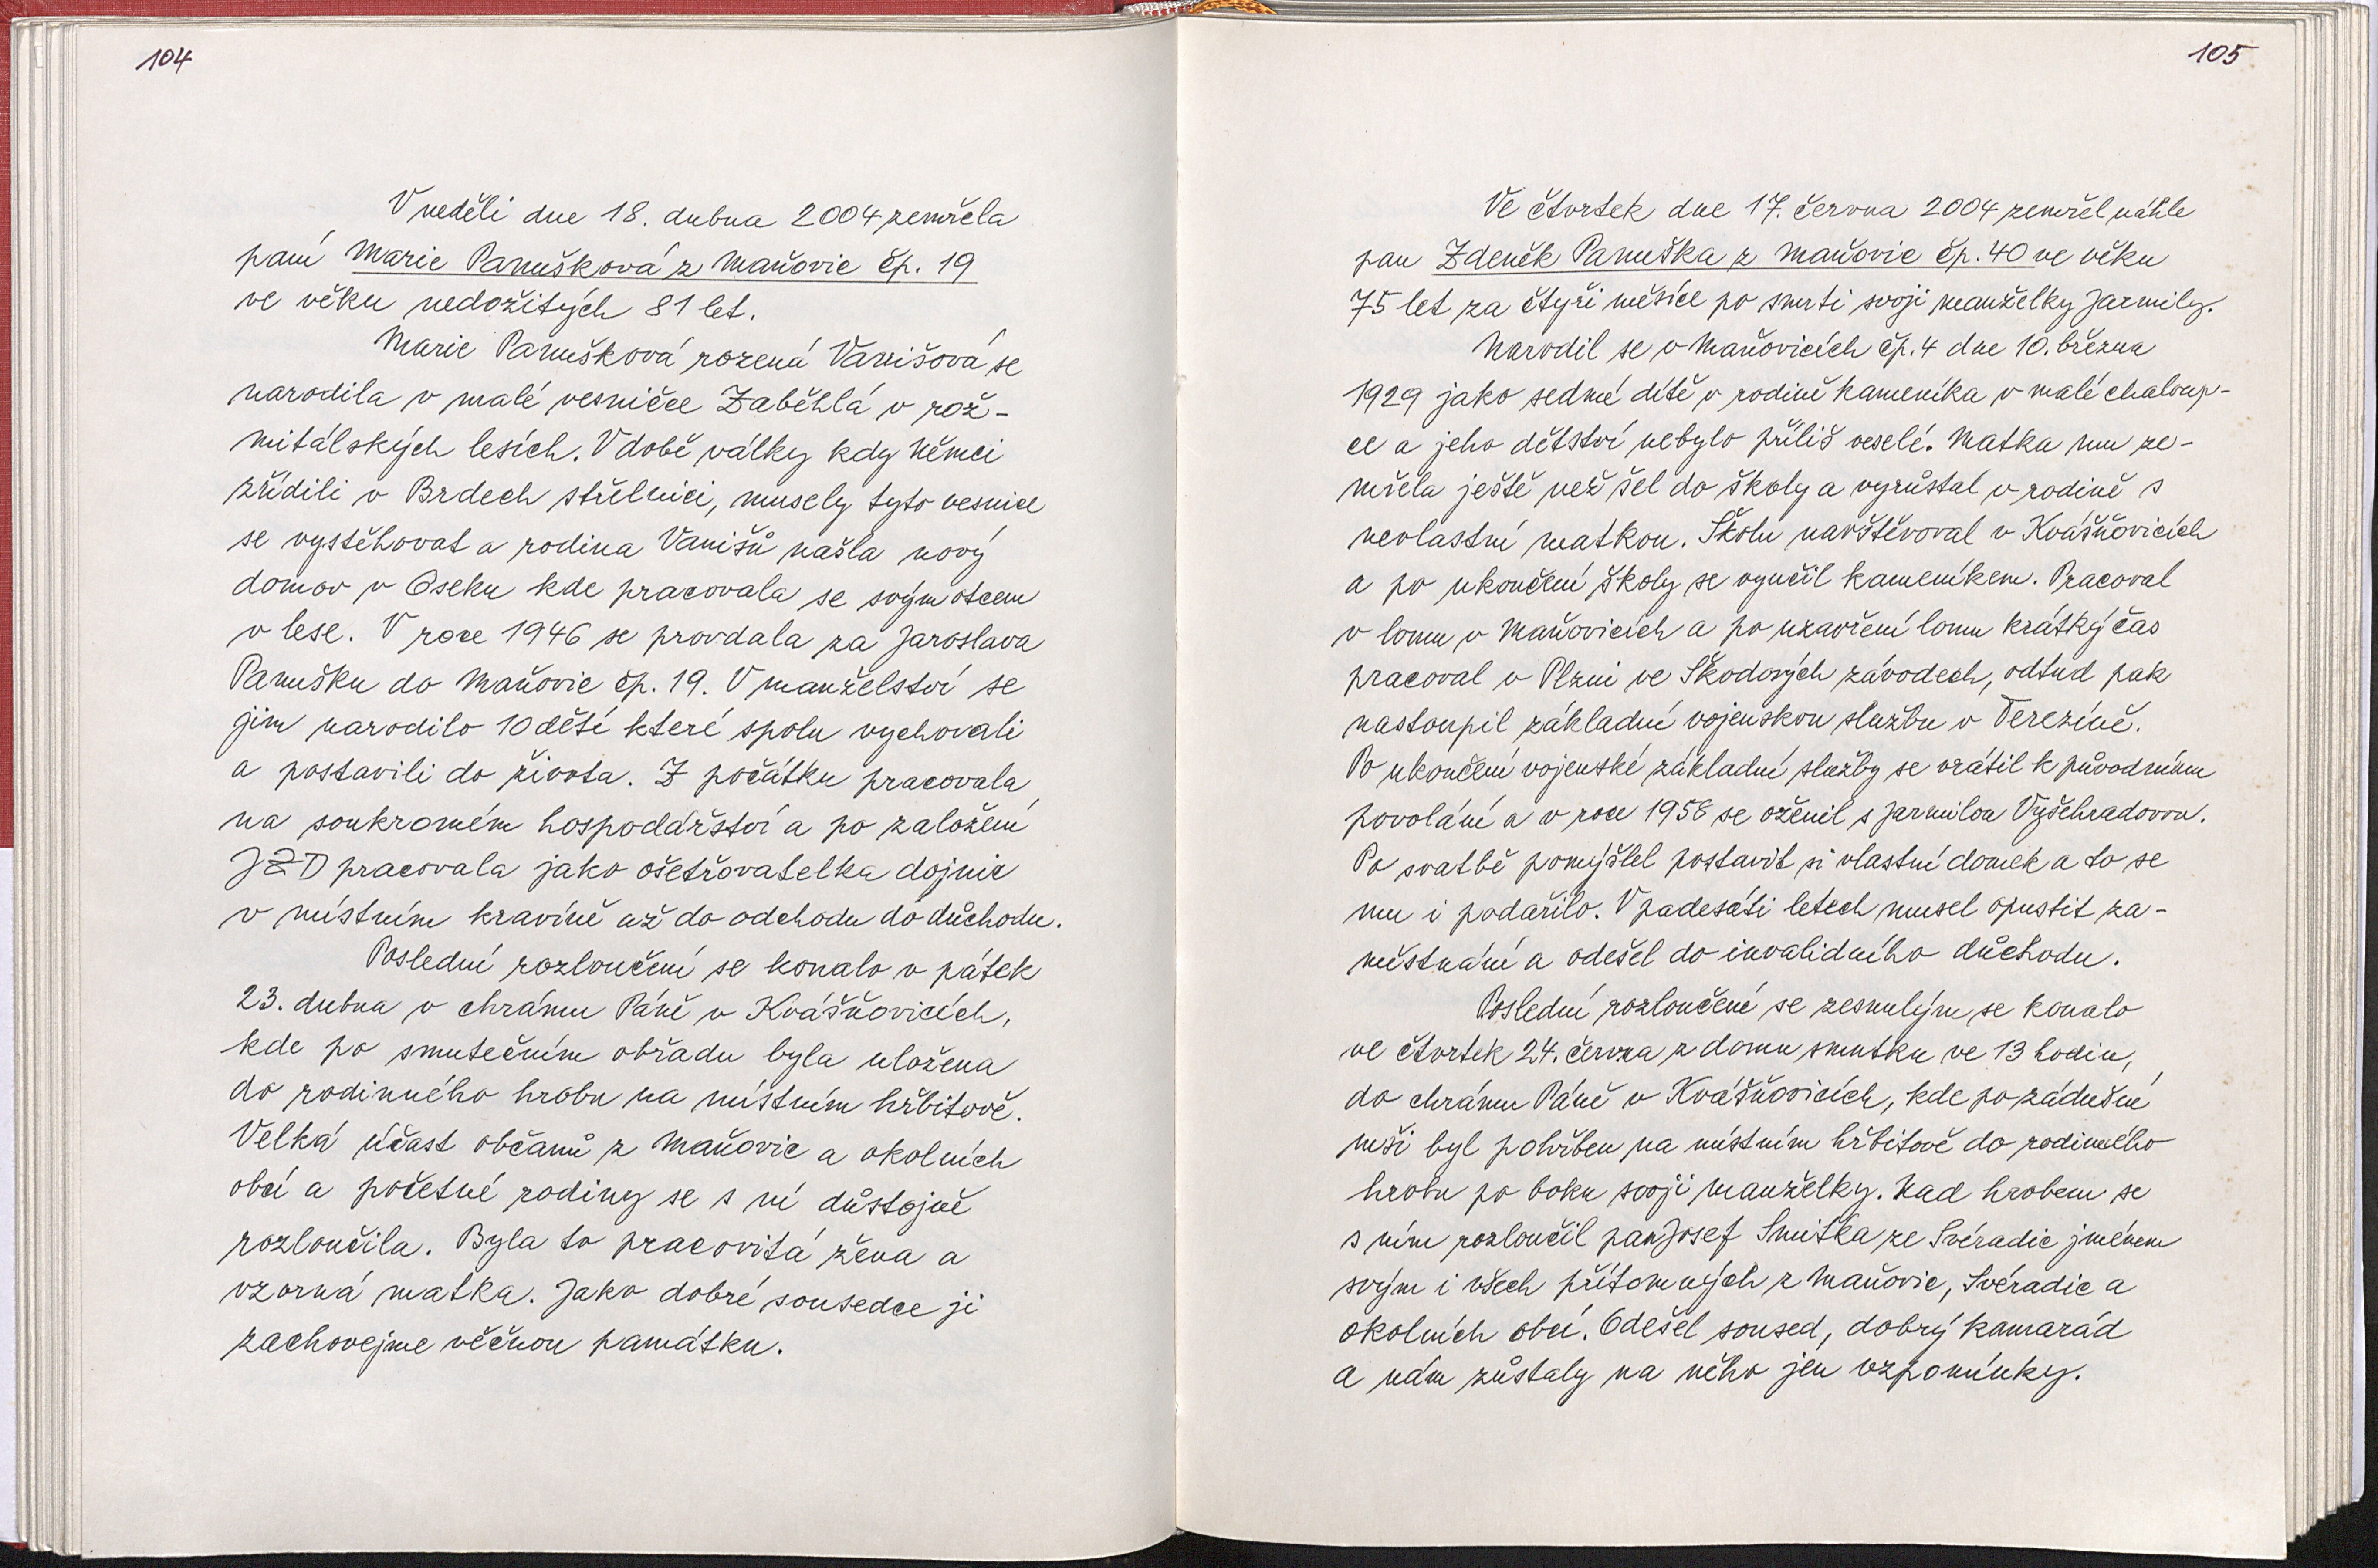 104
V neděli dne 18. dubna 2004 zemřela
paní Marie Panušková z Maňovic čp. 19
ve věku nedožitých 81 let.
Marie Panušková rozená Vanišová se
narodila v malé vesničce Zaběhlá v rož-
mitálských lesích. V době války kdy Němci
zřídili v Brdech střelnici, musely tyto vesnice
se vystěhovat a rodina Vanišů našla nový
domov v Oseku kde pracovala se svým otcem
v lese. V roce 1946 se provdala za Jaroslava
Panušku do Maňovic čp. 19. V manželství se
jim narodilo 10 dětí které spolu vychovali
a postavili do života. Z počátku pracovala
na soukromém hospodářství a po založení
JZD pracovala jako ošetřovatelka dojnic
v místním kravíně až do odchodu do důchodu.
Poslední rozloučení se konalo v pátek
23. dubna v chrámu Páně v Kvášňovicích,
kde po smutečním obřadu byla uložena
do rodinného hrobu na místním hřbitově.
Velká účast občanů z Maňovic a okolních
obcí a početné rodiny se s ní důstojně
rozloučila. Byla to pracovitá žena a
vzorná matka. Jako dobré sousedce ji
zachovejme věčnou památku.
105
Ve čtvrtek dne 17. června 2004 zemřel náhle
pan Zdeněk Panuška z Maňovic čp. 40 ve věku
75 let za čtyři měsíce po smrti svoji manželky Jarmily.
Narodil se v Maňovicích čp. 4 dne 10. března
1929 jako sedmé dítě v rodině kameníka v malé chaloup-
ce a jeho dětství nebylo příliš veselé. Matka mu ze-
mřela ještě než šel do školy a vyrůstal v rodině s
nevlastní matkou. Školu navštěvoval v Kvášňovicích
a po ukončení školy se vyučil kameníkem. Pracoval
v lomu v Maňovicích a po uzavření lomu krátký čas
pracoval v Plzni ve Škodových závodech, odtud pak
nastoupil základní vojenskou službu v Terezíně.
Po ukončení vojenské základní služby se vrátil k původnímu
povolání a v roce 1958 se oženil s Jarmilou Vyšehradovou.
Po svatbě pomýšlel postavit si vlastní domek a to se
mu i podařilo. V padesáti letech musel opustit za-
městnání a odešel do invalidního důchodu.
Poslední rozloučení se zesnulým se konalo
ve čtvrtek 24. června z domu smutku ve 13 hodin,
do chrámu Páně v Kvášňovicích, kde po zádušní
mši byl pohřben na místním hřbitově do rodinného
hrobu po boku svoji manželky. Nad hrobem se
s ním rozloučil pan Josef Smitka ze Svéradic jménem
svým i všech přítomných z Maňovic, Svéradic a
okolních obcí. Odešel soused, dobrý kamarád
a nám zůstaly na něho jen vzpomínky.